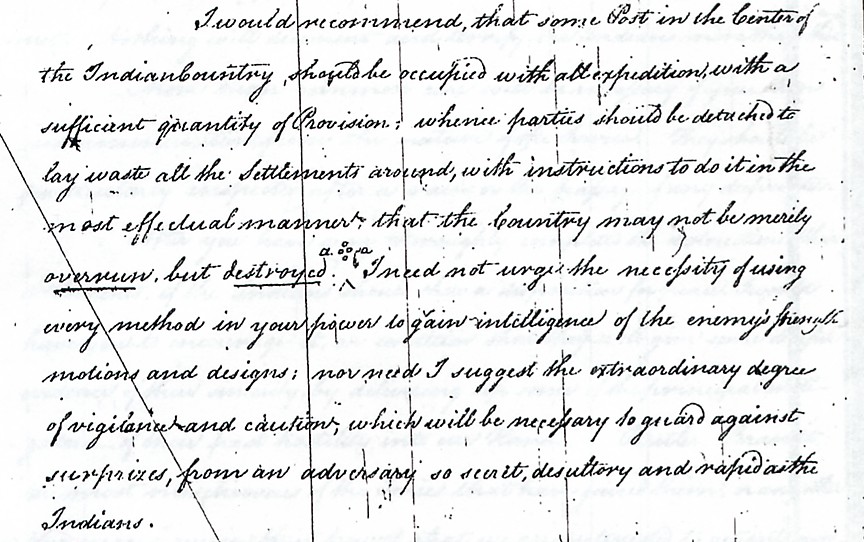 I would recommend, that some Post in the Center of
the Indian Country should be occupied with all expedition, with a
sufficient quantity of Provision; whence parties should be detached to
lay waste all the Settlements around, with instructions to do it in the
most effectual manner; that the Country may not be merily
overrun, but destroyed.
I need not urge the necessity of using
every method in your power to gain intelligence of the enemy's strength
motions and designs; nor need I suggest the extraordinary degree
of vigilance and caution, which will be necessary to guard against
surprizes, from an adversary so secret, desultory and rapid as the
Indians.